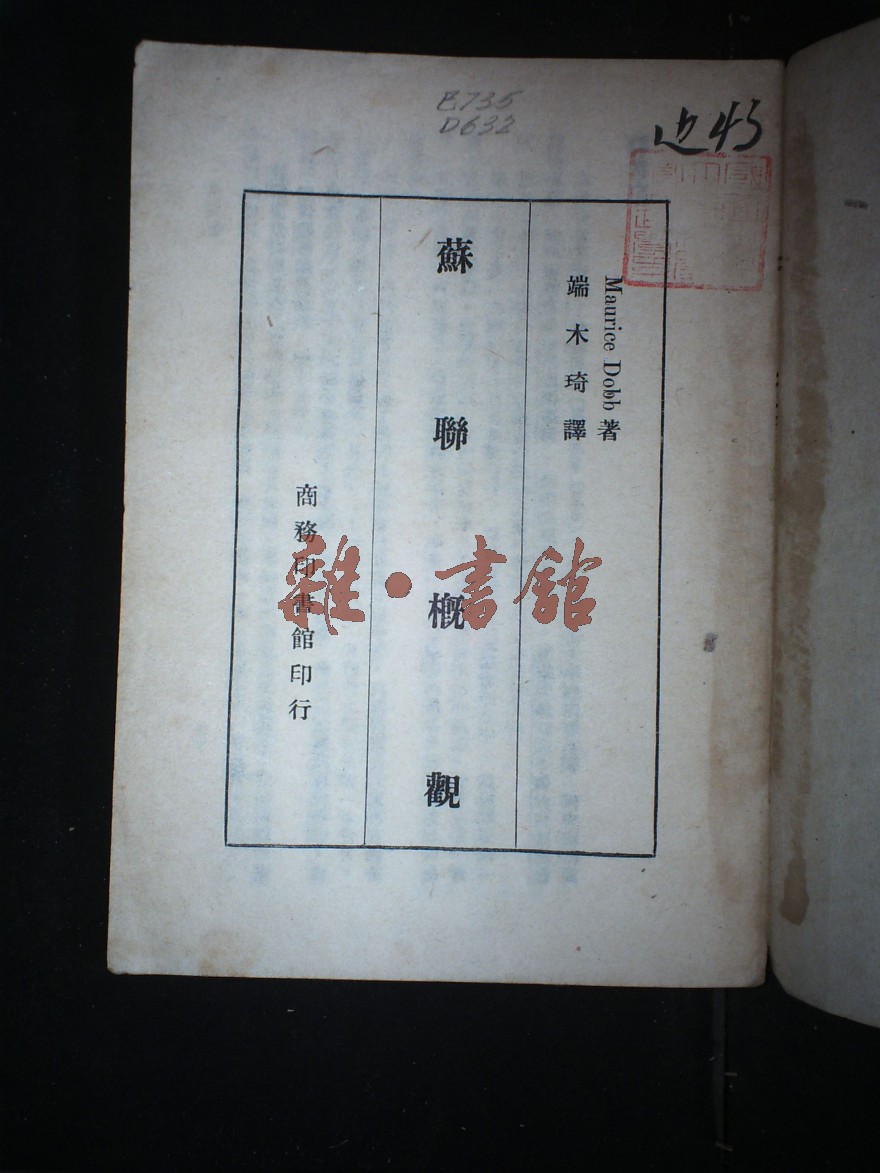 E735
D632
Maurice Dobb 著
端木琦譯
蘇聯概觀
商務印書館印行
雜·書館